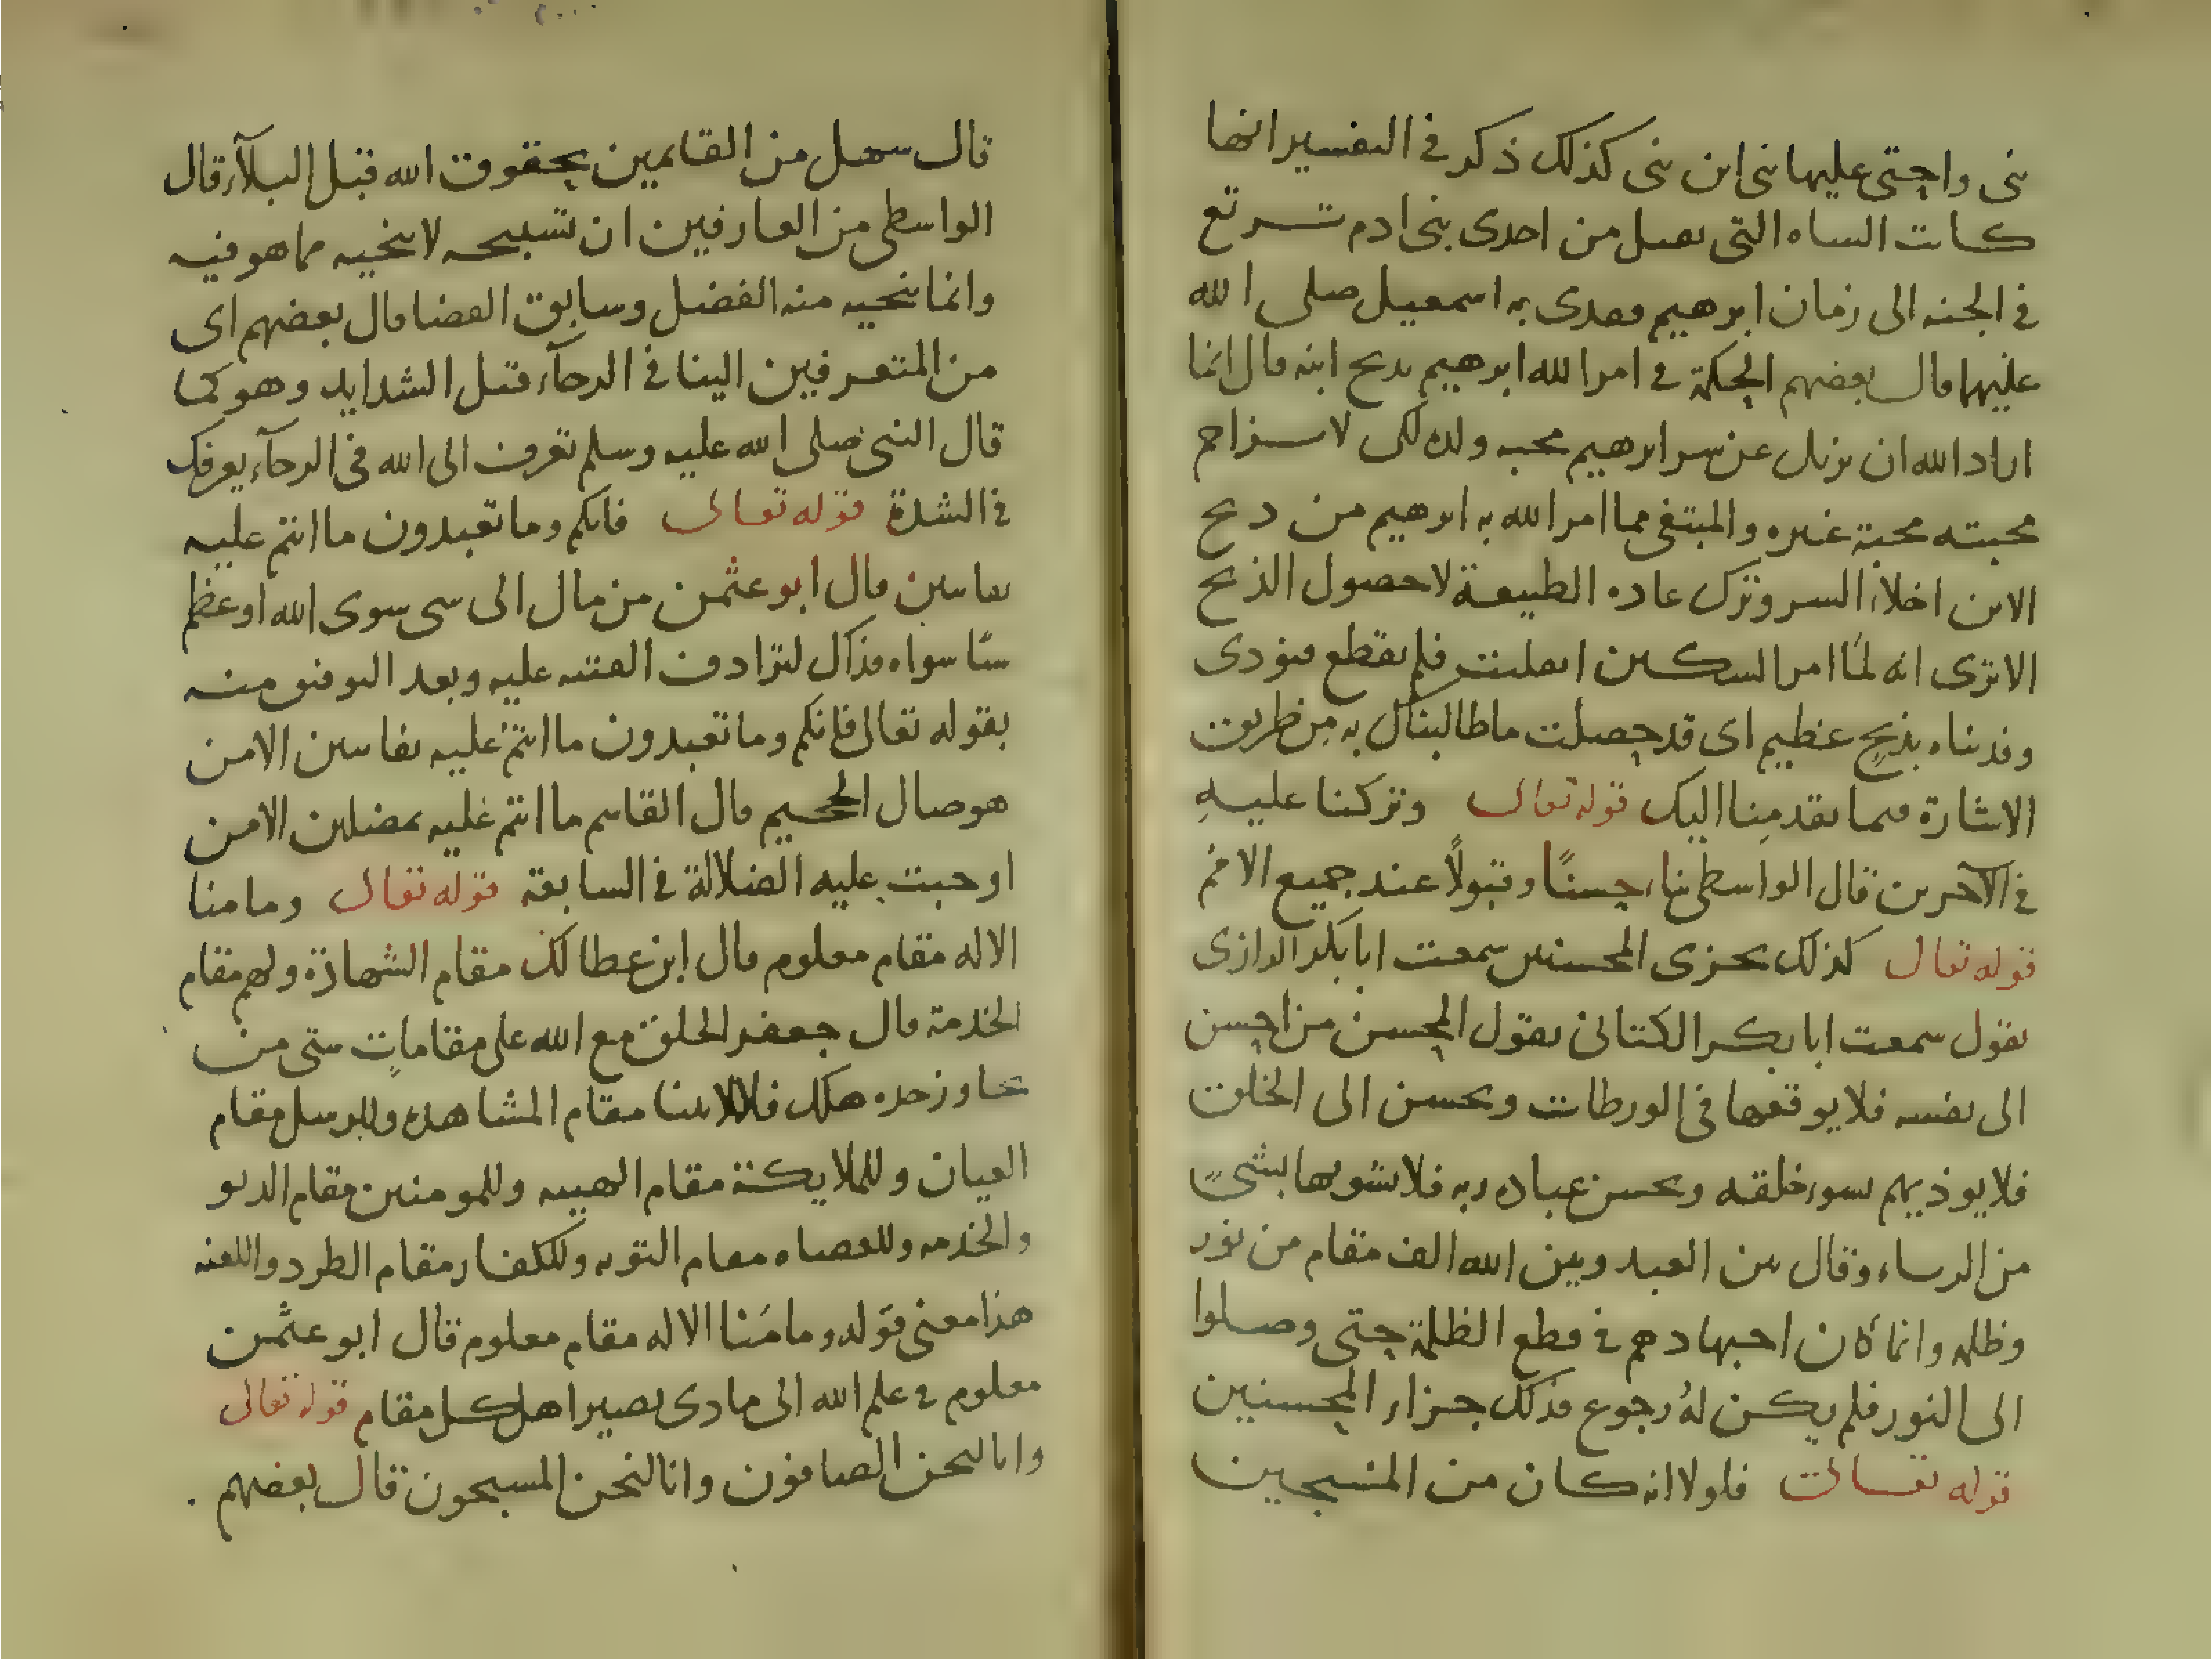 نبى واجتبى عليها نبى ابن نبى كذلك ذكر فى التفسير انها
كانت الشاه التى تقبل من احدى بنى ادم ترتع
فى الجنه الى زمان ابرهيم ففدى به اسمعيل صلى الله
عليهما قال بعضهم الحكمة فى امر الله ابرهيم بذبح ابنه قال انما
اراد الله ان يزيل عن سر ابرهيم محبه ولده لكى لا يزاحم
محبته محبة غيره والمبتغى مما امر الله به ابرهيم من ذبح
الابن اخلاء السر وترك عاده الطبيعة لا حصول الذبح
الا ترى انه لما امر السكين انقلبت فلم يقطع فنودى
وفديناه بذبح عظيم اى قد حصلت ما طالبناك به من طريق
الاشارة فيما تقدمنا اليك قوله تعالى وتركنا عليه
فى الآخرين قال الواسطى ثناء حسنًا وقبولاً عند جميع الامم
قوله تعالى كذلك نجزى المحسنين سمعت ابا بكر الرازى
يقول سمعت ابا بكر الكتانى يقول المحسن من احسن
الى نفسه فلا يوقعها فى الورطات ويحسن الى الخلق
فلا يوذيهم بسوء خلقه ويحسن عباده ربه فلا يشوبها بشئ
من الرياء وقال بين العبد وبين الله الف مقام من نور
وظلمه وانما كان اجتهادهم فى قطع الظلمة حتى وصلوا
الى النور فلم يكن له رجوع فذلك جزاء المحسنين
قوله تعالى فلولا انه كان من المسبحين
قال سهل من القايمين بحقوق الله قبل البلآء قال
الواسطى من العارفين ان تسبيحه لا ينجيه مما هو فيه
وانما ينجيه منه الفضل وسابق القضا قال بعضهم اى
من المتعرفين الينا فى الرخآء قبل الشدايد وهو كما
قال النبى صلى الله عليه وسلم تعرف الى الله فى الرخآء يعرفك
فى الشدة قوله تعالى فانكم وما تعبدون ما انتم عليه
بفاتنين قال ابو عثمن من مال الى شى سوى الله او عظم
شيًا سواه فذاك لترادف الفتنه عليه وبعد التوفيق منه
بقوله تعالى فانكم وما تعبدون ما انتم عليه بفاتنين الا من
هو صال الجحيم قال القاسم ما انتم عليه بمضلين الا من
اوجبت عليه الضلالة فى السابقة قوله تعالى وما منا
الا له مقام معلوم قال ابن عطا لك مقام الشهادة ولهم مقام
الخدمة قال جعفر الخلق مع الله على مقامات شتى من
تجاوز حده هلك فللانبيا مقام المشاهده وللرسل مقام
العيان وللملايكة مقام الهيبه وللمومنين مقام الدنو
والخدمه وللعصاه مقام التوبه وللكفار مقام الطرد واللعنه
هذا معنى قوله وما منا الا له مقام معلوم قال ابو عثمن
معلوم فى علم الله الى ماذى يصير اهل كل مقام قوله تعالى
وانا لنحن الصافون وانا لنحن المسبحون قال بعضهم .